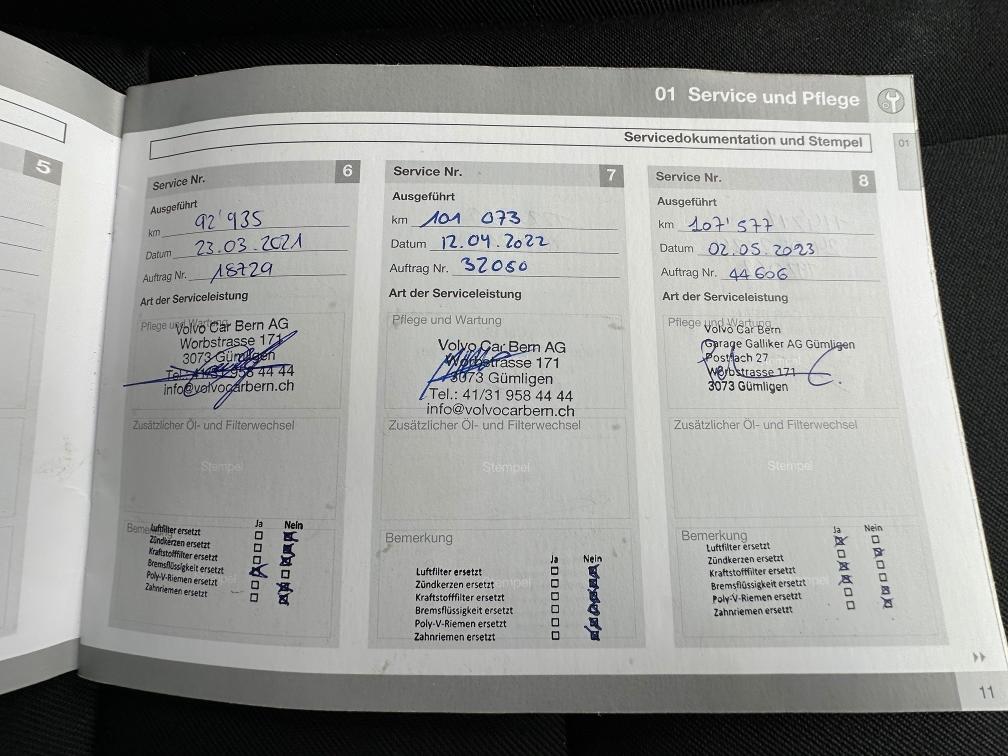 01 Service und Pflege
Servicedokumentation und Stempel
01
5
Service Nr. 6
Ausgeführt
km 92'935
Datum 23.03.2021
Auftrag Nr. 18729
Art der Serviceleistung
Pflege und Wartung
Volvo Car Bern AG
Worbstrasse 171
3073 Gümligen
Tel.: 41/31 958 44 44
info@volvocarbern.ch
Zusätzlicher Öl- und Filterwechsel
Stempel
Bemerkung
Ja Nein
Luftfilter ersetzt
Zündkerzen ersetzt
Kraftstofffilter ersetzt
Bremsflüssigkeit ersetzt
Poly-V-Riemen ersetzt
Zahnriemen ersetzt
Service Nr. 7
Ausgeführt
km 101 073
Datum 12.04.2022
Auftrag Nr. 32050
Art der Serviceleistung
Pflege und Wartung
Volvo Car Bern AG
Worbstrasse 171
3073 Gümligen
Tel.: 41/31 958 44 44
info@volvocarbern.ch
Zusätzlicher Öl- und Filterwechsel
Stempel
Bemerkung
Ja Nein
Luftfilter ersetzt
Zündkerzen ersetzt
Kraftstofffilter ersetzt
Bremsflüssigkeit ersetzt
Poly-V-Riemen ersetzt
Zahnriemen ersetzt
Service Nr. 8
Ausgeführt
km 107'577
Datum 02.05.2023
Auftrag Nr. 44606
Art der Serviceleistung
Pflege und Wartung
Volvo Car Bern
Garage Galliker AG Gümligen
Postfach 27
Worbstrasse 171
3073 Gümligen
Zusätzlicher Öl- und Filterwechsel
Stempel
Bemerkung
Ja Nein
Luftfilter ersetzt
Zündkerzen ersetzt
Kraftstofffilter ersetzt
Bremsflüssigkeit ersetzt
Poly-V-Riemen ersetzt
Zahnriemen ersetzt
11